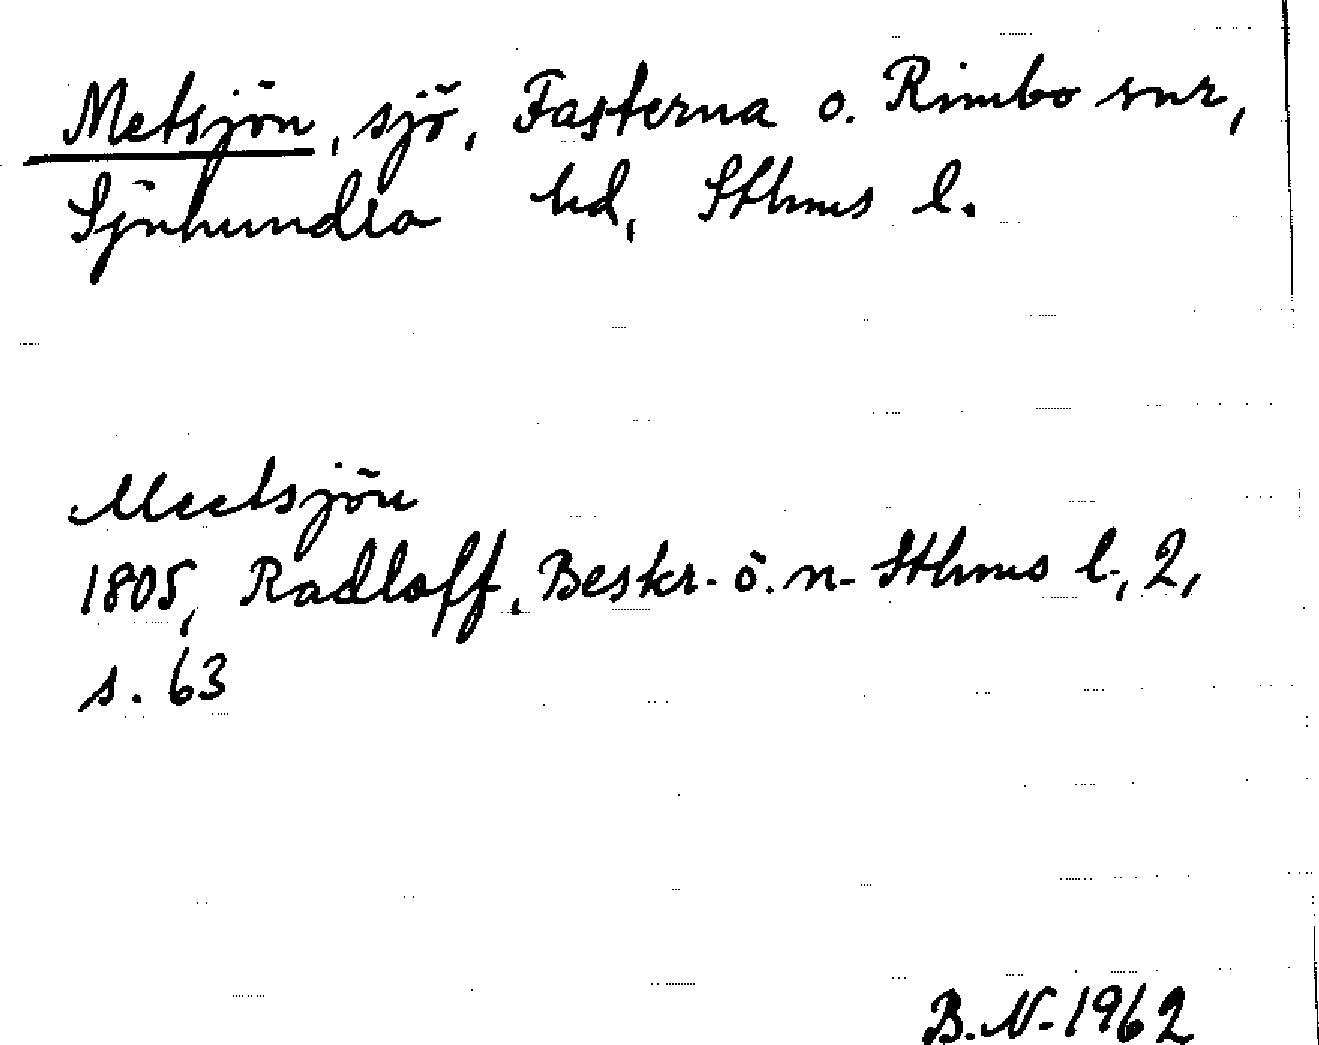 Metsjön, sjö, Fasterna o. Rimbo snr,
Sjuhundra hd, Sthms l.
Meetsjön
1805, Radloff, Beskr. ö. n. Sthms l., 2,
s. 63
B.N. 1962